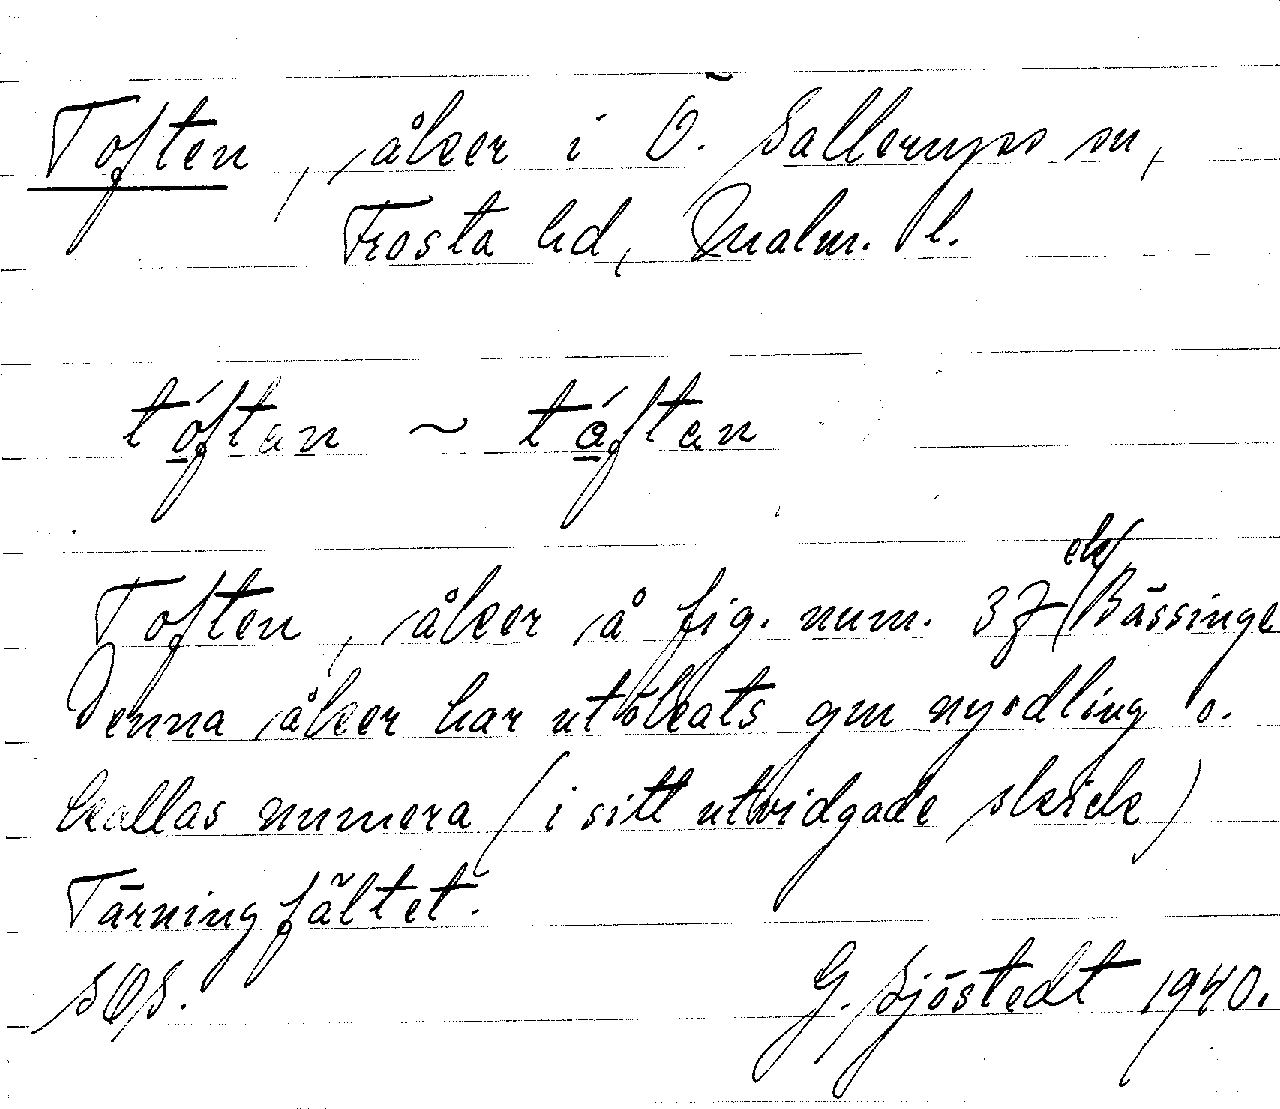 Toften, åker i Ö. Sallerups sn,
Frosta hd, Malm. l.
tóftan ~ táftan
Toften, åker å fig. num. 37 ek/ Bässinge
Denna åker har utökats gm nyodling o.
kallas numera (i sitt utvidgade skick)
Tärningfältet.
SOS. G. Sjöstedt 1940.